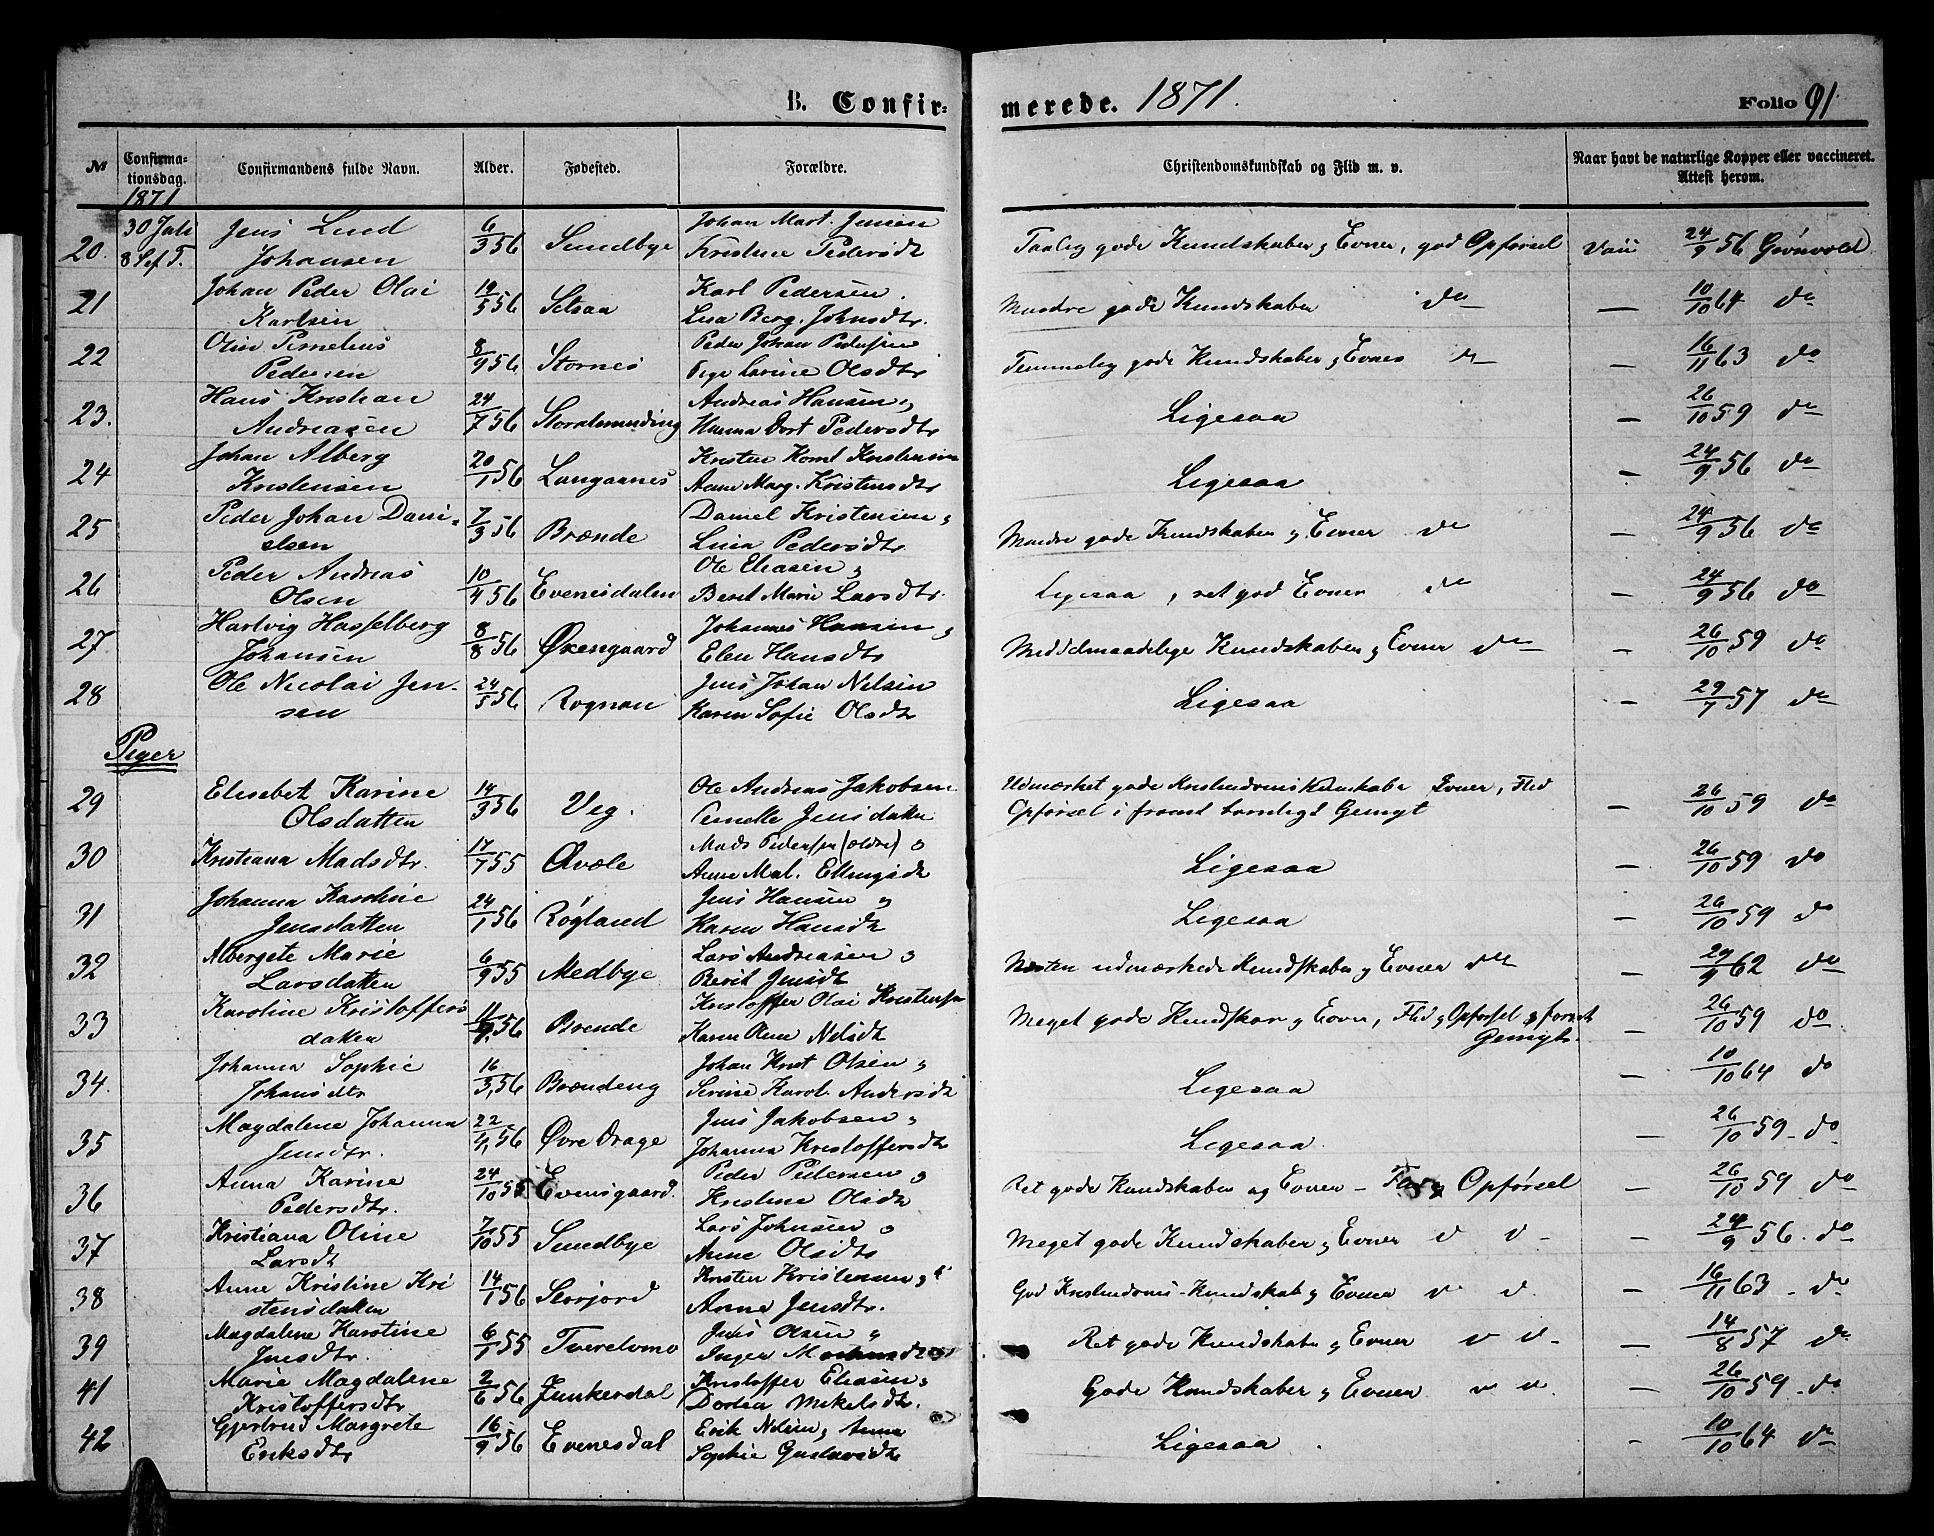 B. Confir- merede. 1871. Folio 91
№ Confirma-tionsdag. Confirmandens fulde Navn. Alder. Fødested. Forældre. Christendomskundskab og Flid m. v. Naar havt de naturlige Kopper eller vaccineret. Attest herom.
1871
20. 30 Juli 8 Sef T. Jens Lund Johansen 6/3 56 Sundbye Johan Mart. Jensen Kristine Pedersdtr Taalig gode Kundskaber og Evner, god Opførsel Vacc 24/9 56 Grønvold
21 Johan Peder Olai Karlsen 19/5 56 Setsaa Karl Pedersen Lisa Berg. Johnsdtr. Mindre gode Kundskaber do — 10/10 64 do
22 Pedersen 8/9 56 Stornes Peder Johan Pedersen Larine Olsdtr Temmelig gode Kundskaber og Evner do — 16/11 63 do
23. Hans Kristian Andreasen 24/7 56 Storalmnding Andreas Hansen og Hanna Dort Pedersdtr Ligesaa — 26/10 59 do
24 Johan Alberg Kristensen 20/1 56 Langaanes Kristen Kornl Kristensen Anne Marg. Kristensdtr Ligesaa — 24/9 56 do
25 Peder Johan Dani-elsen 7/3 56 Brænde Daniel Kristensen og Lina Pedersdtr Mindre gode Kundskaber og Evner do — 24/9 56 do
26 Peder Andreas Olsen 10/4 56 Evenesdalen Ole Eliasen og Beret Marie Larsdtr. Ligesaa, ret god Evner do — 24/9 56 do
27 Hartvig Hasselberg Johansen 8/8 56 Øxengaard Johannes Hansen og Elen Hansdtr Middelmaadelige Kundskaber og Evner do — 26/10 59 do
28 Ole Nicolai Jen-sen 24/5 56 Rognan Jens Johan Nelsen Karen Sofie Olsdtr Ligesaa — 29/7 57 do
Piger
29 Elisebet Karine Olsdatter 14/3 56 Veg. Ole Andreas Jakobsen Jensdatter Udmærket gode Kristendomskundskaber Evner, Flid Opførsel i fromt barnligt Gemyt — 26/10 59 do
30 Kristiana Madsdtr. 17/7 55 Qvæle Mads Pedersen (ældre) og Anne Mal. Ellingsdtr Ligesaa — 26/10 59 do
31 Johanna Karoline Jensdatter 24/1 56 Røgland Jens Hansen og Karen Hansdtr Ligesaa — 26/10 59 do
32 Albergete Marie Larsdatter 6/9 55 Medbye Lars Andreasen og Berit Jensdtr Næsten udmærkede Kundskaber og Evner do — 29/9 62 do
33 Karoline Kristoffers datter 11/9 56 Brende Kristoffer Olai Kristensen Karen Nelsdtr Meget gode Kundskab og Evner, Flid og Opførsel og fromt Gemyt. — 26/10 59 do
34. Johanna Sophie Johansdtr 16/3 56 Brændeng Johan Krist Olsen og Serine Karol. Andersdtr Ligesaa — 10/10 64 do
35 Magdalene Johanna Jensdtr. 22/4 56 Øvre Drage Jens Jakobsen og Johanna Kristoffersdtr Ligesaa. — 26/10 59 - do
36 Anna Karine Pedersdtr. 24/10 55 Evensgaard. Peder Pedersen og Kristine Olsdtr Ret gode Kundskaber og Evner - Flid og Opførsel — 26/10 59 do
37 Kristiana Oline Larsdtr 7/10 55 Sundbye Lars Johnsen og Anne Olsdtr Meget gode Kundskaber og Evner d d - — 24/9 56. do
38 Anne Kristine Kri stensdatter 14/1 56 Storjord Kristen Kristensen og Anne Jensdtr. God Kristendoms-Kundskab og Evner d d. — 16/11 63 - do
39 Magdalene Karoline Jensdtr. 6/1 55 Tverelvmo Jens Olsen og Inger Ret gode Kundskaber og Evner d d - — 14/8 57 do
41 Marie Magdalene Kristoffersdtr 2/6 56 Junkerdal Kristoffer Eliasen og Dortea Mikelsdtr. Gode Kundskaber og Evner d d. — 26/10 59 - do
42 Gjertrud Margrete Eriksdtr 16/9 56 Evenesdal Erik Nelsen og Anne Sophie Gustavsdtr Ligesaa. — 10/10 64 do